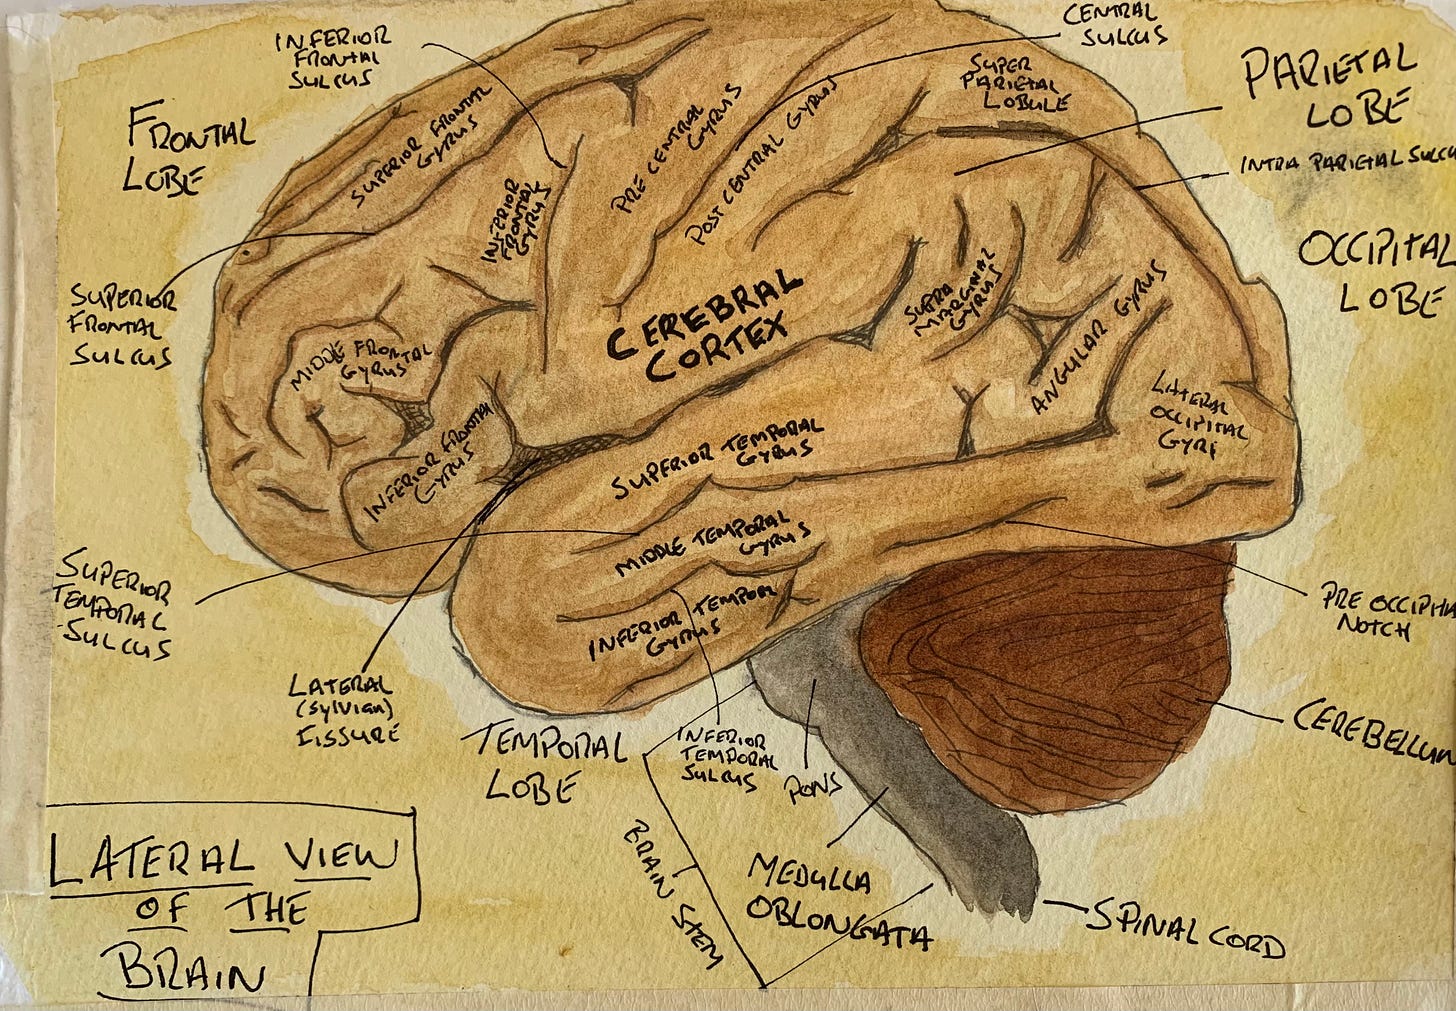 INFERIOR
FRONTAL
SULCUS
CENTRAL
SULCUS
FRONTAL
LOBE
PARIETAL
LOBE
SUPERIOR FRONTAL
GYRUS
PRE CENTRAL
GYRUS
POST CENTRAL GYRUS
SUPER
PARIETAL
LOBULE
INTRA PARIETAL SULCU
INFERIOR
FRONTAL
GYRUS
OCCIPITAL
LOBE
SUPERIOR
FRONTAL
SULCUS
CEREBRAL
CORTEX
SUPRA
MARGINAL
GYRUS
ANGULAR GYRUS
MIDDLE FRONTAL
GYRUS
LATERAL
OCCIPITAL
GYRI
INFERIOR FRONTAL
GYRUS
SUPERIOR TEMPORAL
GYRUS
MIDDLE TEMPORAL
GYRUS
INFERIOR TEMPORAL
GYRUS
SUPERIOR
TEMPORAL
SULCUS
PRE OCCIPITA
NOTCH
LATERAL
(Sylvian)
FISSURE
TEMPORAL
LOBE
INFERIOR
TEMPORAL
SULCUS
PONS
CEREBELLUM
BRAIN STEM
MEDULLA
OBLONGATA
SPINAL CORD
LATERAL VIEW
OF THE
BRAIN